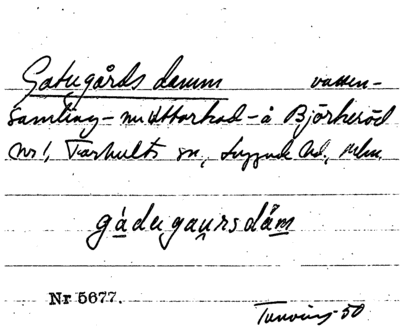 Gatugårds damm vatten-
samling - nu uttorkad - å Björkeröd
nr 1, Farhults sn, Luggude hd, Mlm.
gádugau̯rsdåm
Nr 5677.
Tuneving-50